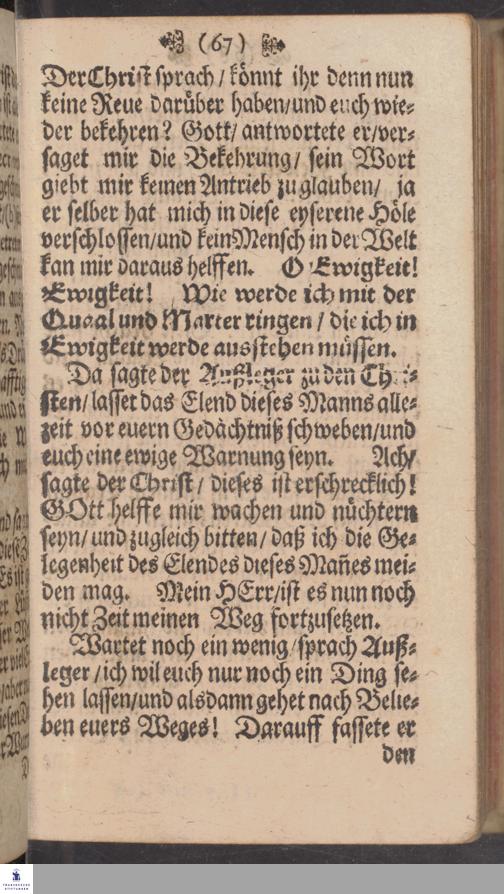 (67)
Der Christ sprach / könnt ihr denn nun
keine Reue darüber haben/und euch wie⸗
der bekehren? Gott/ antwortete er/ver⸗
saget mir die Bekehrung/ sein Wort
giebt mir keinen Antrieb zu glauben/ ja
er selber hat mich in diese eyserene Höle
verschlossen/und kein Mensch in der Welt
kan mir daraus helffen. O Ewigkeit!
Ewigkeit! Wie werde ich mit der
Quaal und Marter ringen / die ich in
Ewigkeit werde ausstehen müssen.
Da sagte der Außleger zu den Chri⸗
sten/ lasset das Elend dieses Manns alle⸗
zeit vor euern Gedächtniß schweben/und
euch eine ewige Warnung seyn. Ach/
sagte der Christ / dieses ist erschrecklich!
GOtt helffe mir wachen und nüchtern
seyn/ und zugleich bitten/ daß ich die Ge⸗
legenheit des Elendes dieses Mañes mei⸗
den mag. Mein HErr/ist es nun noch
nicht Zeit meinen Weg fortzusetzen.
Wartet noch ein wenig/ sprach Auß⸗
leger /ich wil euch nur noch ein Ding se⸗
hen lassen/und alsdann gehet nach Belie⸗
ben euers Weges! Darauff fassete er
den
FRANCKESCHE
STIFTUNGEN